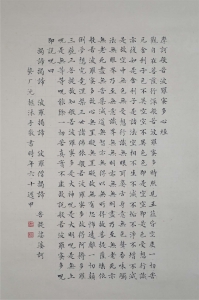 摩訶般若波羅蜜多心經
觀自在菩薩行深般若波羅蜜多時照見五蘊皆空度一切苦
厄舍利子色不異空空不異色色即是空空即是色受想行識
亦復如是舍利子是諸法空相不生不滅不垢不淨不增不減
是故空中無色無受想行識無眼耳鼻舌身意無色聲香味觸
法無眼界乃至無意識界無無明亦無無明盡乃至無老死亦
無老死盡無苦集滅道無智亦無得以無所得故菩提薩埵依
般若波羅蜜多故心無罣礙無罣礙故無有恐怖遠離一切顛
倒夢想究竟涅槃三世諸佛依般若波羅蜜多故得阿耨多羅
三藐三菩提故知般若波羅蜜多是大神呪是大明呪是無上
呪是無等等呪能除一切苦真實不虛故說般若波羅蜜多呪
即說呪曰
揭諦揭諦 波羅揭諦 波羅僧揭諦 菩提薩婆訶
敬書時年六十